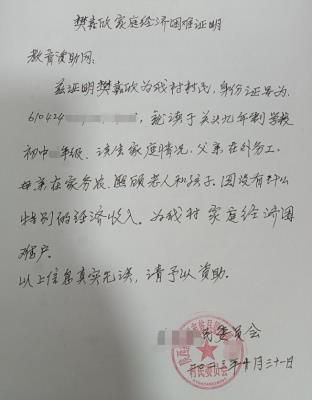 樊嘉欣家庭经济困难证明
教育资助网:
兹证明樊嘉欣为我村村民,身份证号为:
610424 ,就读于关头九年制学校
初中 年级、该生家庭情况,父亲在外务工.
母亲在家务农、照顾老人和孩子.因没有什么
特别的经济收入.为我村家庭经济困
难户.
以上信息真实无误,请予以资助.
民委员会
年十月三十一日
村民委员会